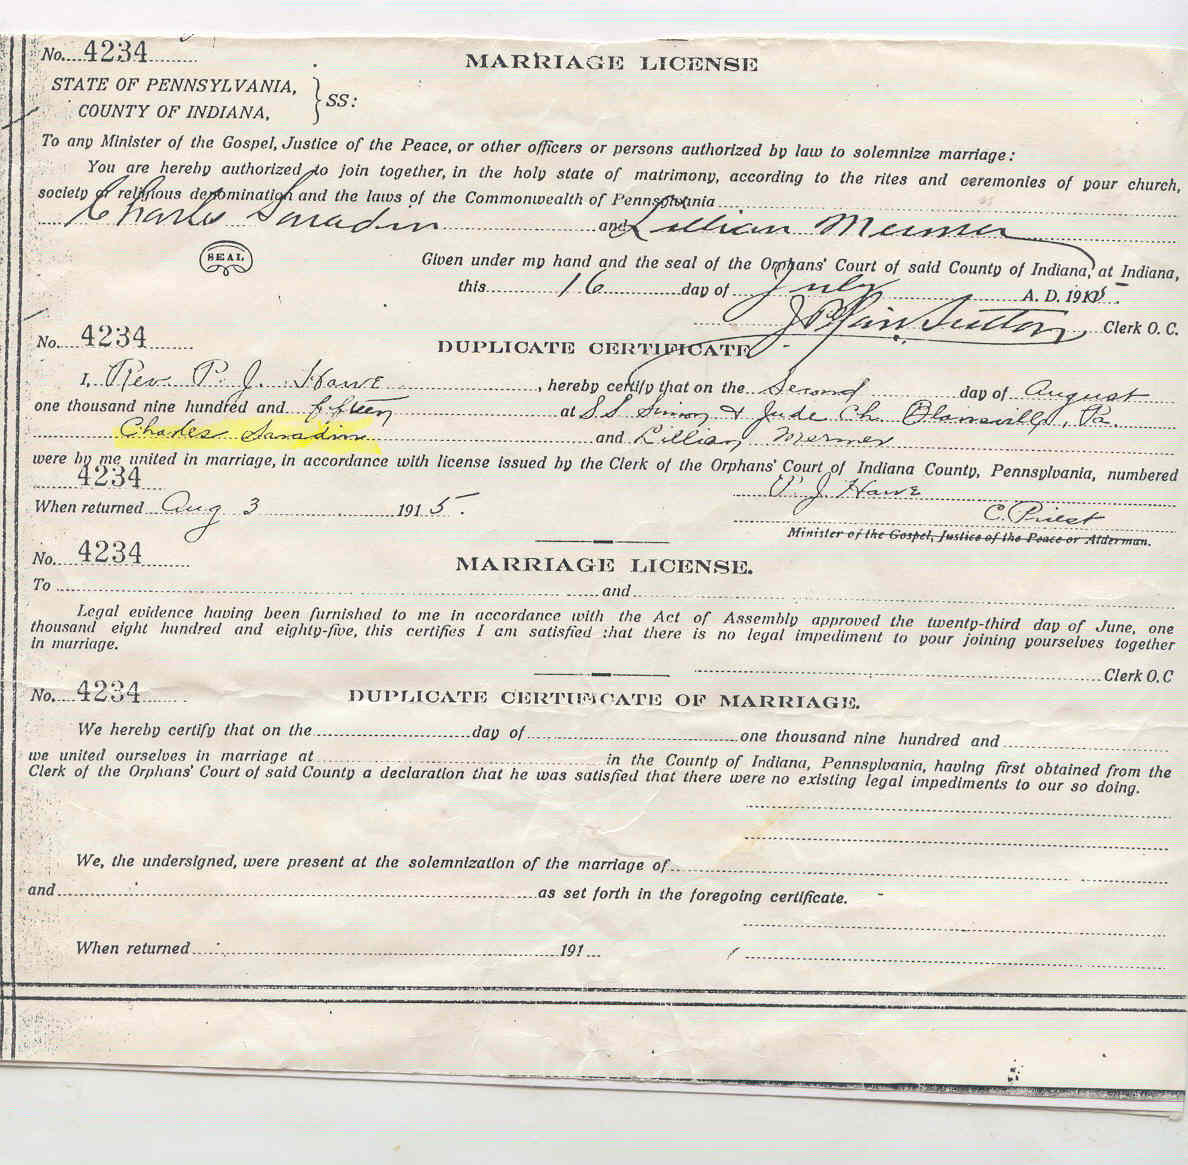 No. 4234
MARRIAGE LICENSE
STATE OF PENNSYLVANIA,
COUNTY OF INDIANA,
SS:
To any Minister of the Gospel, Justice of the Peace, or other officers or persons authorized by law to solemnize marriage:
You are hereby authorized to join together, in the holy state of matrimony, according to the rites and ceremonies of your church,
society or religious denomination and the laws of the Commonwealth of Pennsylvania
Charles Saradin and Lillian Mermer
SEAL
Given under my hand and the seal of the Orphans' Court of said County of Indiana, at Indiana,
this 16 day of July A. D. 1915.
Sutton, Clerk O. C.
No. 4234
DUPLICATE CERTIFICATE
I, Rev. P. J. Hawe, hereby certify that on the Second day of August
one thousand nine hundred and fifteen at SS Simon & Jude Ch. Blairsville, Pa.
Charles Saradin and Lillian Mermer
were by me united in marriage, in accordance with license issued by the Clerk of the Orphans' Court of Indiana County, Pennsylvania, numbered
4234
P. J. Hawe
When returned Aug 3 1915.
C. Priest
Minister of the Gospel, Justice of the Peace or Alderman.
No. 4234
MARRIAGE LICENSE.
To and
Legal evidence having been furnished to me in accordance with the Act of Assembly approved the twenty-third day of June, one
thousand eight hundred and eighty-five, this certifies I am satisfied that there is no legal impediment to your joining yourselves together
in marriage.
Clerk O. C
No. 4234
DUPLICATE CERTIFICATE OF MARRIAGE.
We hereby certify that on the day of one thousand nine hundred and
we united ourselves in marriage at in the County of Indiana, Pennsylvania, having first obtained from the
Clerk of the Orphans' Court of said County a declaration that he was satisfied that there were no existing legal impediments to our so doing.
We, the undersigned, were present at the solemnization of the marriage of
and as set forth in the foregoing certificate.
When returned 191